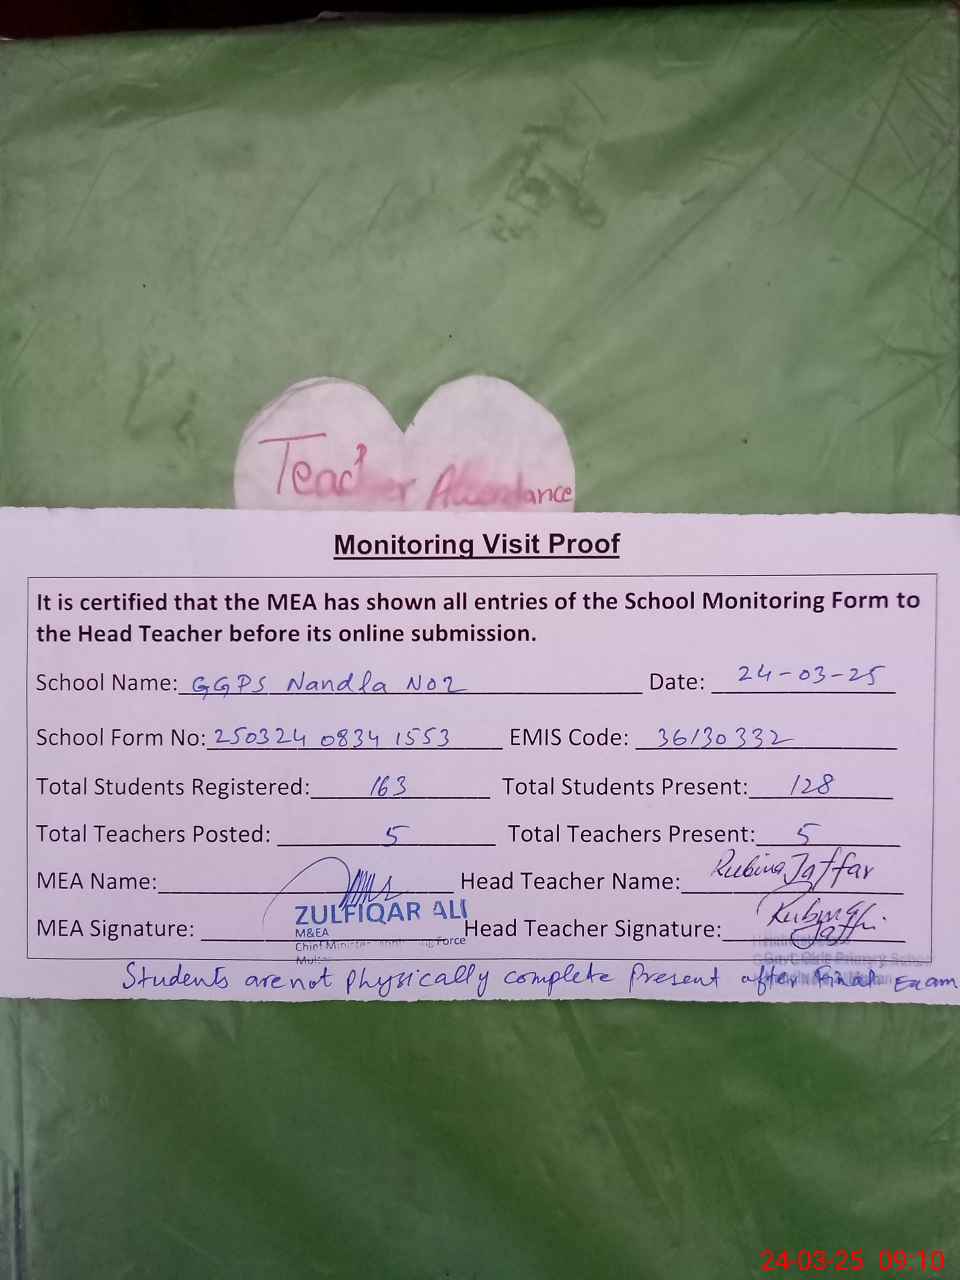 Teacher Attendance
Monitoring Visit Proof
It is certified that the MEA has shown all entries of the School Monitoring Form to
the Head Teacher before its online submission.
School Name: GGPS Nandla No2 Date: 24-03-25
School Form No: 250324 0834 1553 EMIS Code: 36130332
Total Students Registered: 163 Total Students Present: 128
Total Teachers Posted: 5 Total Teachers Present: 5
MEA Name: Head Teacher Name: Rubina Jaffar
ZULFIQAR ALI
MEA Signature: Head Teacher Signature:
M&EA
Chief Minister Force
Govt. Girls Primary School
Students are not physically complete Present after Final Exam
24-03-25 09:10